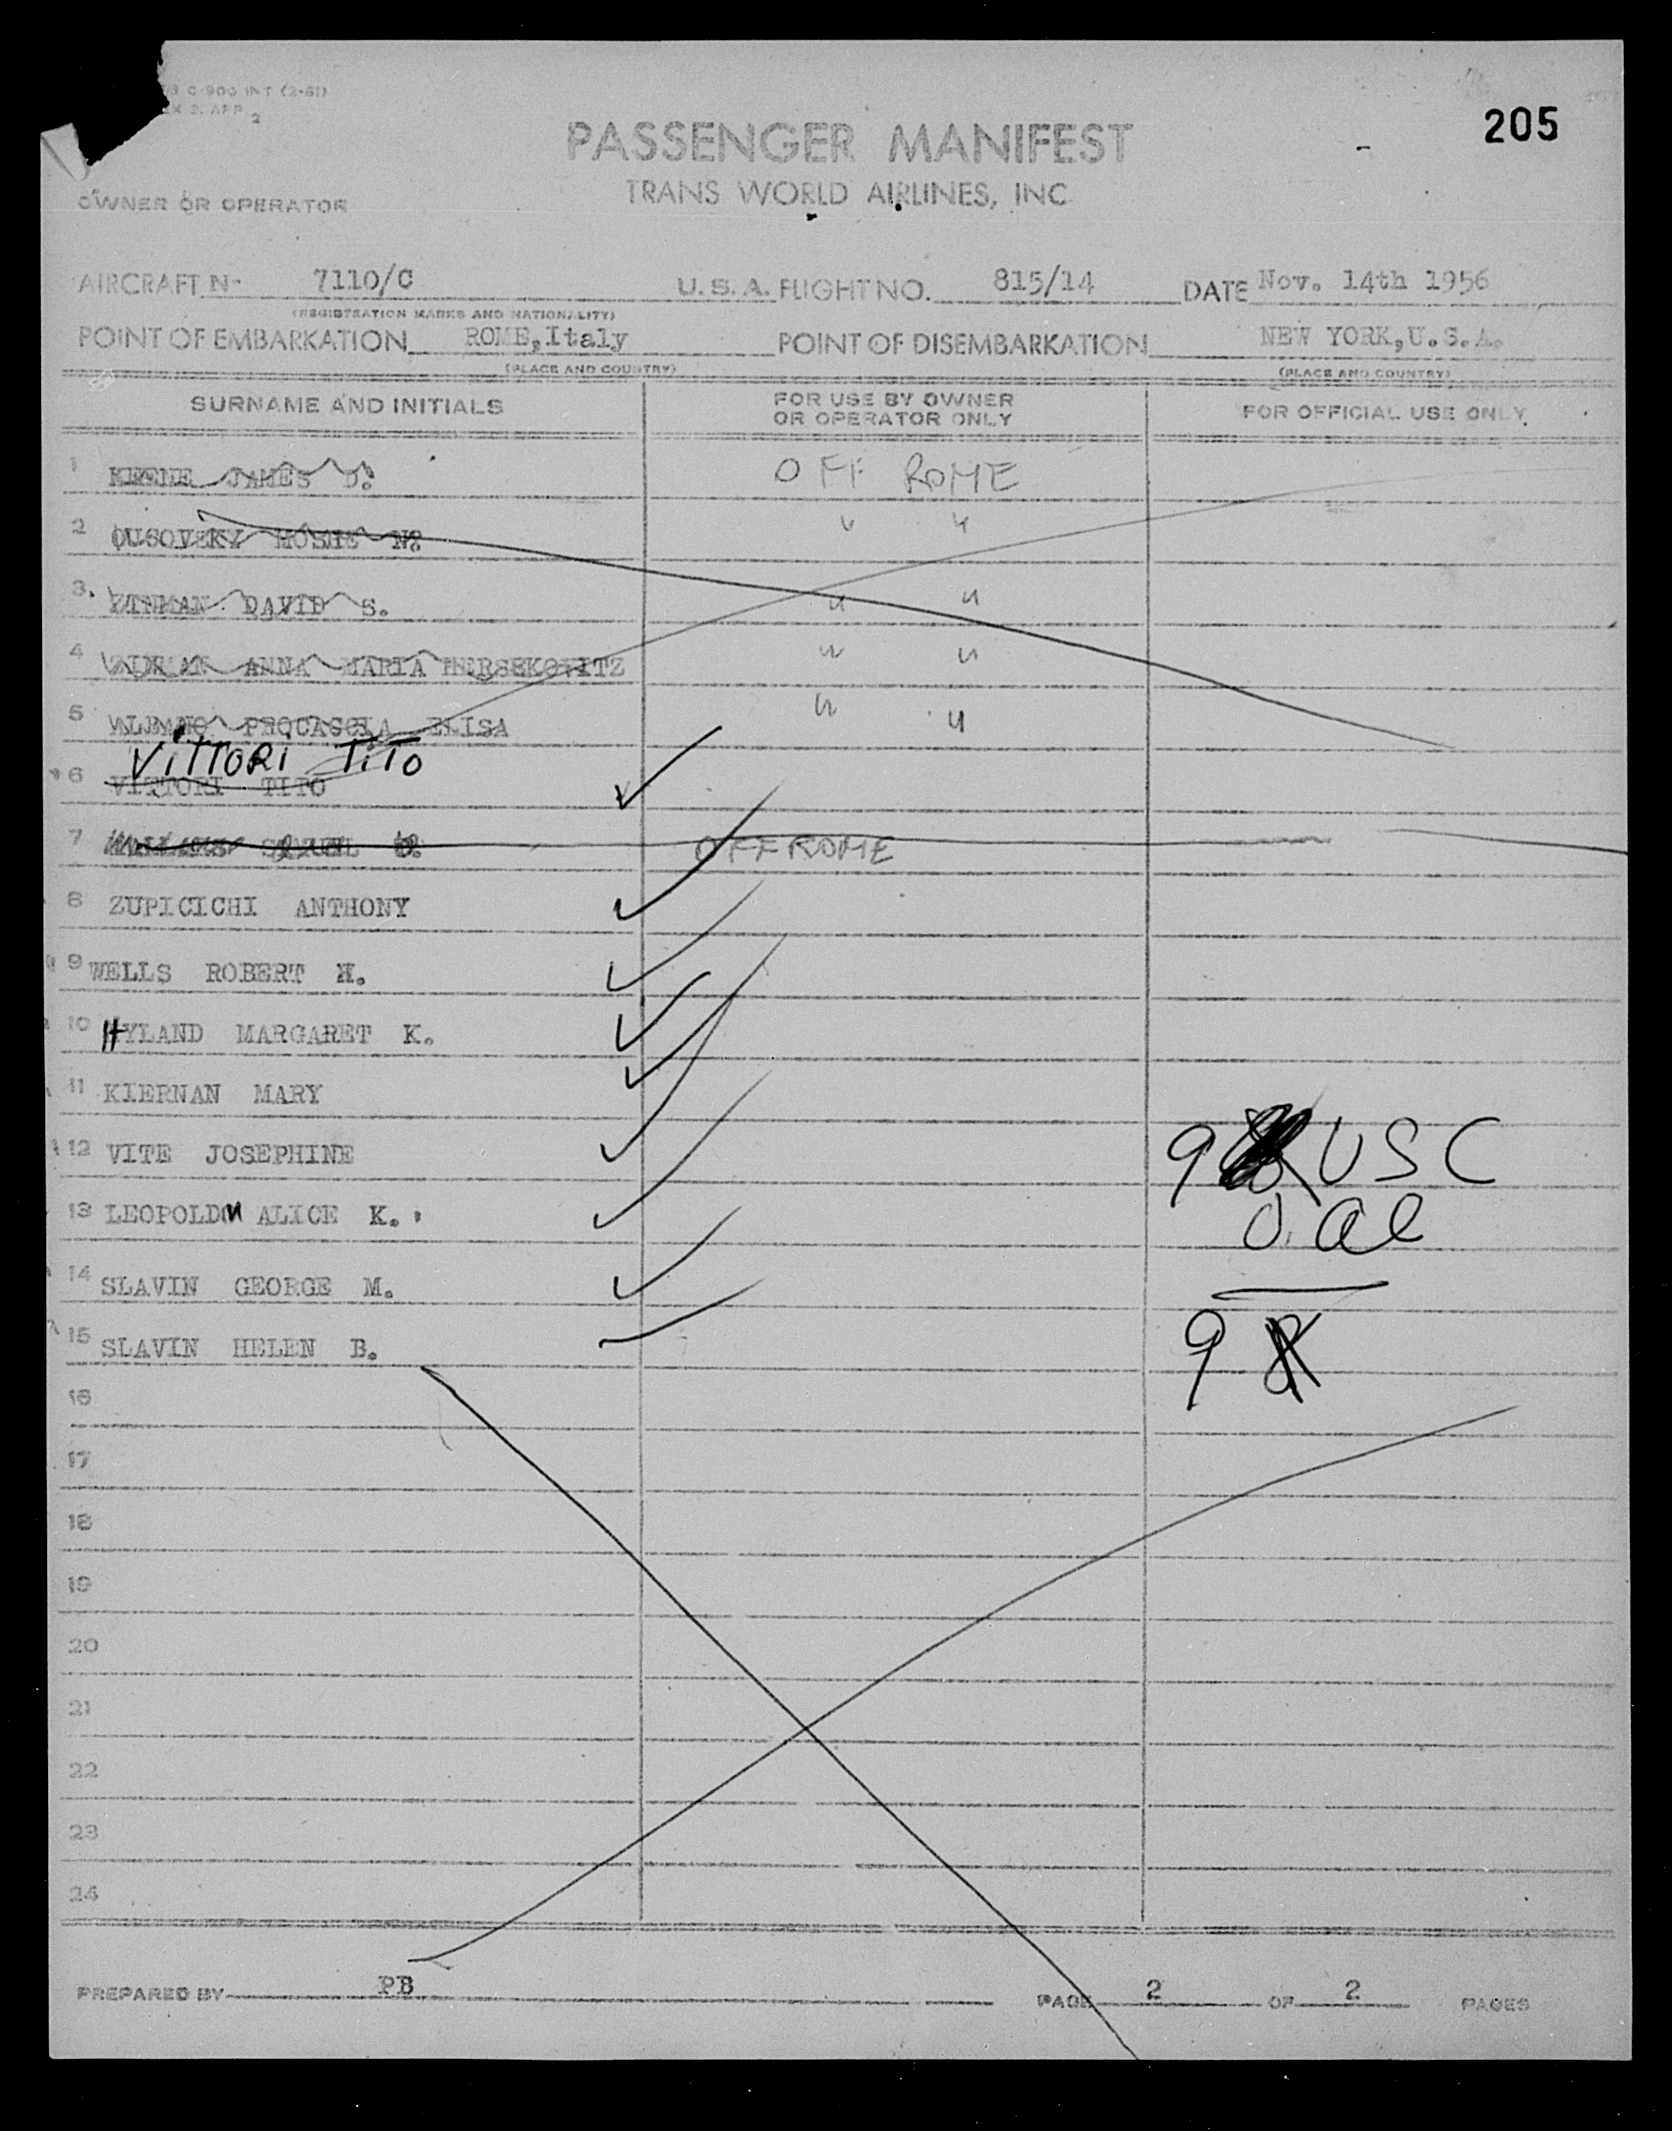 C-900 INT (2-61)
2
205
PASSENGER MANIFEST
TRANS WORLD AIRLINES, INC
OWNER OR OPERATOR
AIRCRAFT N- 7110/C U. S. A. FLIGHT NO. 815/14 DATE Nov. 14th 1956
(REGISTRATION MARKS AND NATIONALITY)
POINT OF EMBARKATION ROME, Italy POINT OF DISEMBARKATION NEW YORK, U.S.A.
(PLACE AND COUNTRY) (PLACE AND COUNTRY)
SURNAME AND INITIALS FOR USE BY OWNER OR OPERATOR ONLY FOR OFFICIAL USE ONLY
1 KEENE JAMES J. OFF ROME
2 MOSHE N. " "
3. ZINMAN DAVID S. " "
4 ZINMAN ANNA MARIA HERSEKOVITZ " "
5 ELISA " "
ViTTORi TiTO
6 VITTORI TITO
7 SAMUEL OFF ROME
8 ZUPICICHI ANTHONY
9 WELLS ROBERT H.
10 HYLAND MARGARET K.
11 KIERNAN MARY
12 VITE JOSEPHINE 9 USC
13 LEOPOLD ALICE K. 0. al
14 SLAVIN GEORGE M.
15 SLAVIN HELEN B. 9
16
17
18
19
20
21
22
23
24
PREPARED BY PB PAGE 2 OF 2 PAGES